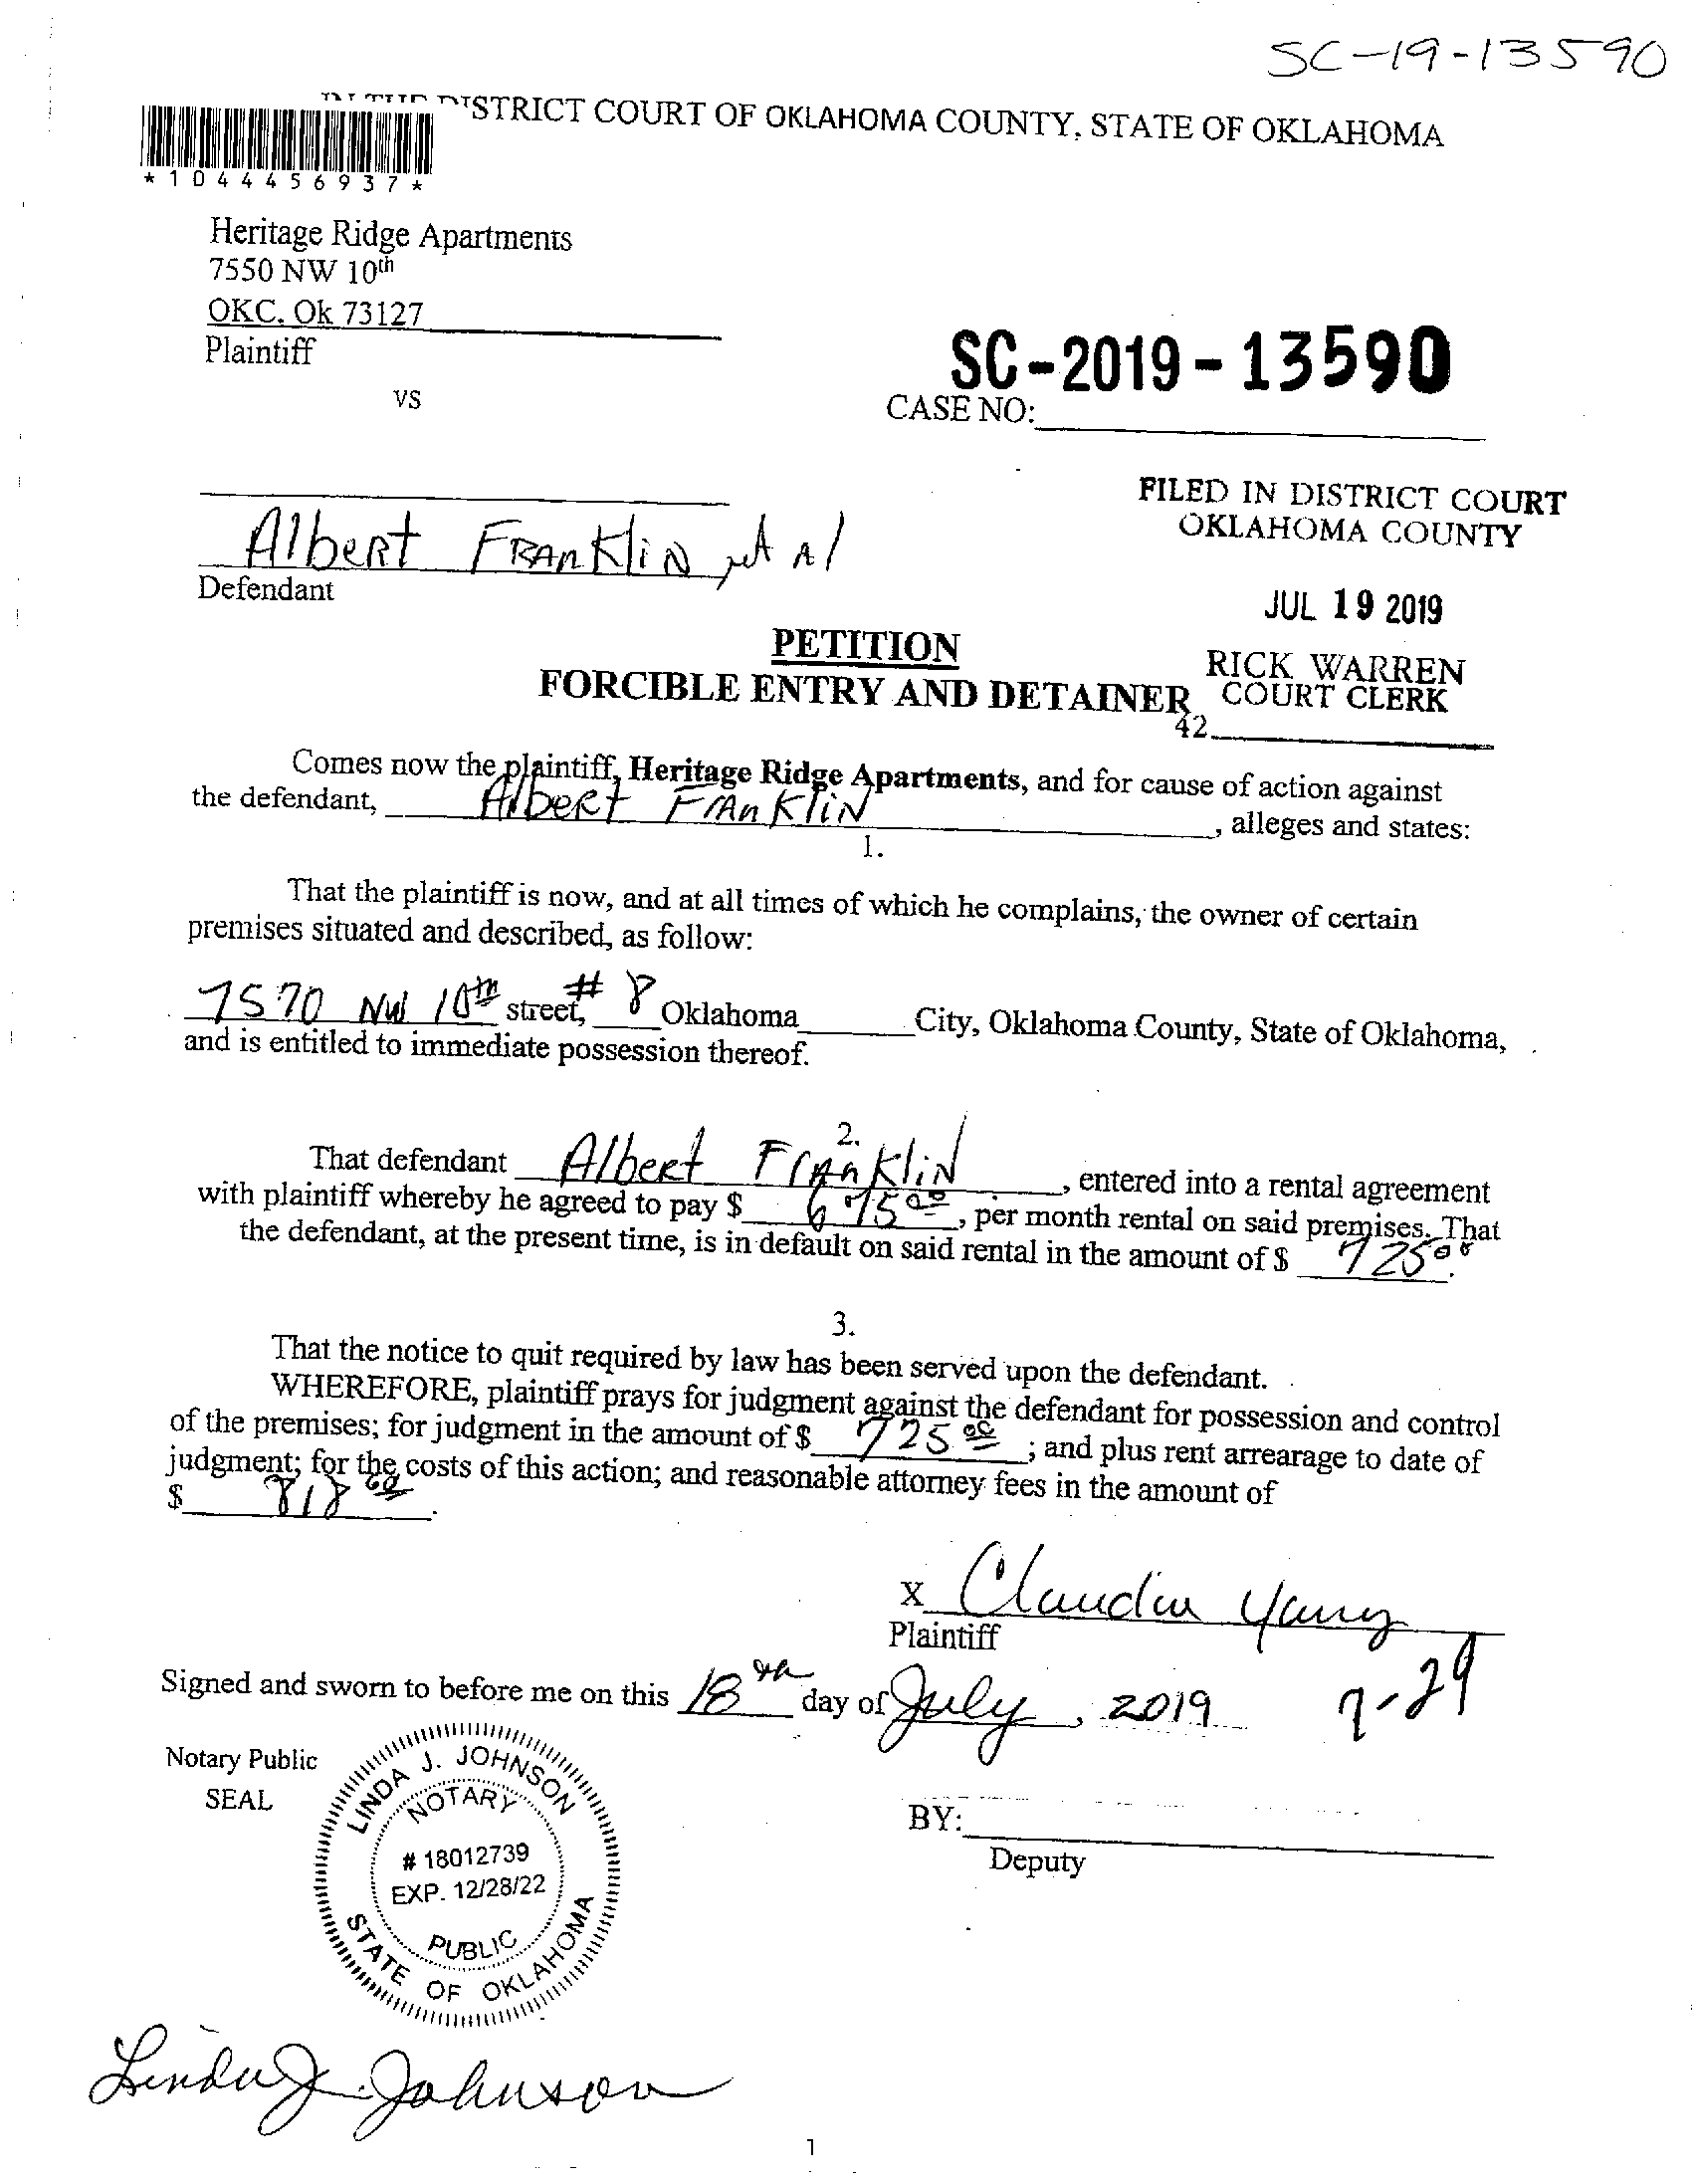 SC-19-13590
DISTRICT COURT OF OKLAHOMA COUNTY, STATE OF OKLAHOMA
*1044456937*
Heritage Ridge Apartments
7550 NW 10th
OKC, Ok 73127
Plaintiff
SC-2019-13590
vs
CASE NO:
FILED IN DISTRICT COURT
OKLAHOMA COUNTY
Albert Franklin et al
Defendant
JUL 19 2019
PETITION
RICK WARREN
FORCIBLE ENTRY AND DETAINER
COURT CLERK
42
Comes now the plaintiff, Heritage Ridge Apartments, and for cause of action against
the defendant, Albert Franklin, alleges and states:
1.
That the plaintiff is now, and at all times of which he complains, the owner of certain
premises situated and described, as follow:
7570 NW 10th street, # 8 Oklahoma City, Oklahoma County, State of Oklahoma,
and is entitled to immediate possession thereof.
2.
That defendant Albert Franklin, entered into a rental agreement
with plaintiff whereby he agreed to pay $ 675 00, per month rental on said premises. That
the defendant, at the present time, is in default on said rental in the amount of $ 725 00.
3.
That the notice to quit required by law has been served upon the defendant.
WHEREFORE, plaintiff prays for judgment against the defendant for possession and control
of the premises; for judgment in the amount of $ 725 00; and plus rent arrearage to date of
judgment; for the costs of this action; and reasonable attorney fees in the amount of
$ 818 60.
x Claudia Yanez
Plaintiff
Signed and sworn to before me on this 18th day of July, 2019
7-29
Notary Public
SEAL
LINDA J. JOHNSON
NOTARY
# 18012739
EXP. 12/28/22
PUBLIC
STATE OF OKLAHOMA
BY:
Deputy
Linda J. Johnson
1